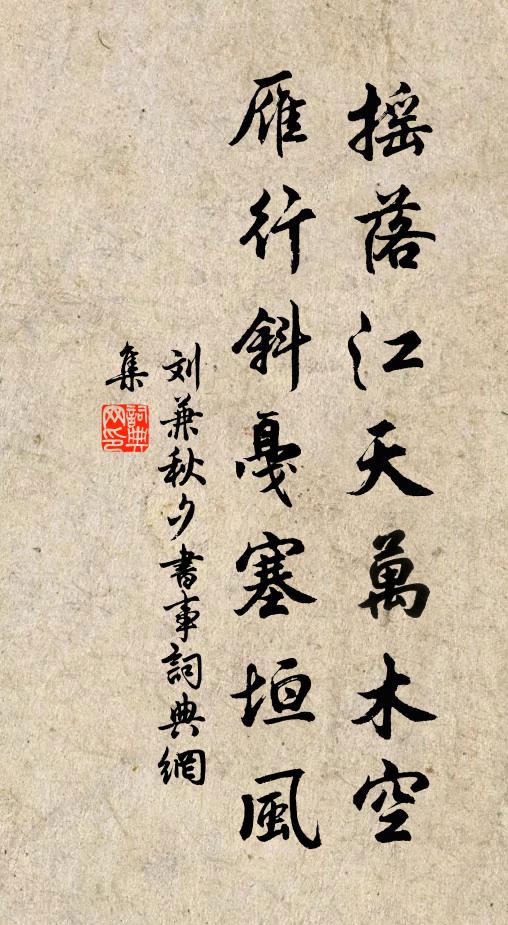 摇落江天萬木空
雁行斜戞塞垣風
刘兼秋夕書事詞典網
集
詞典
网印